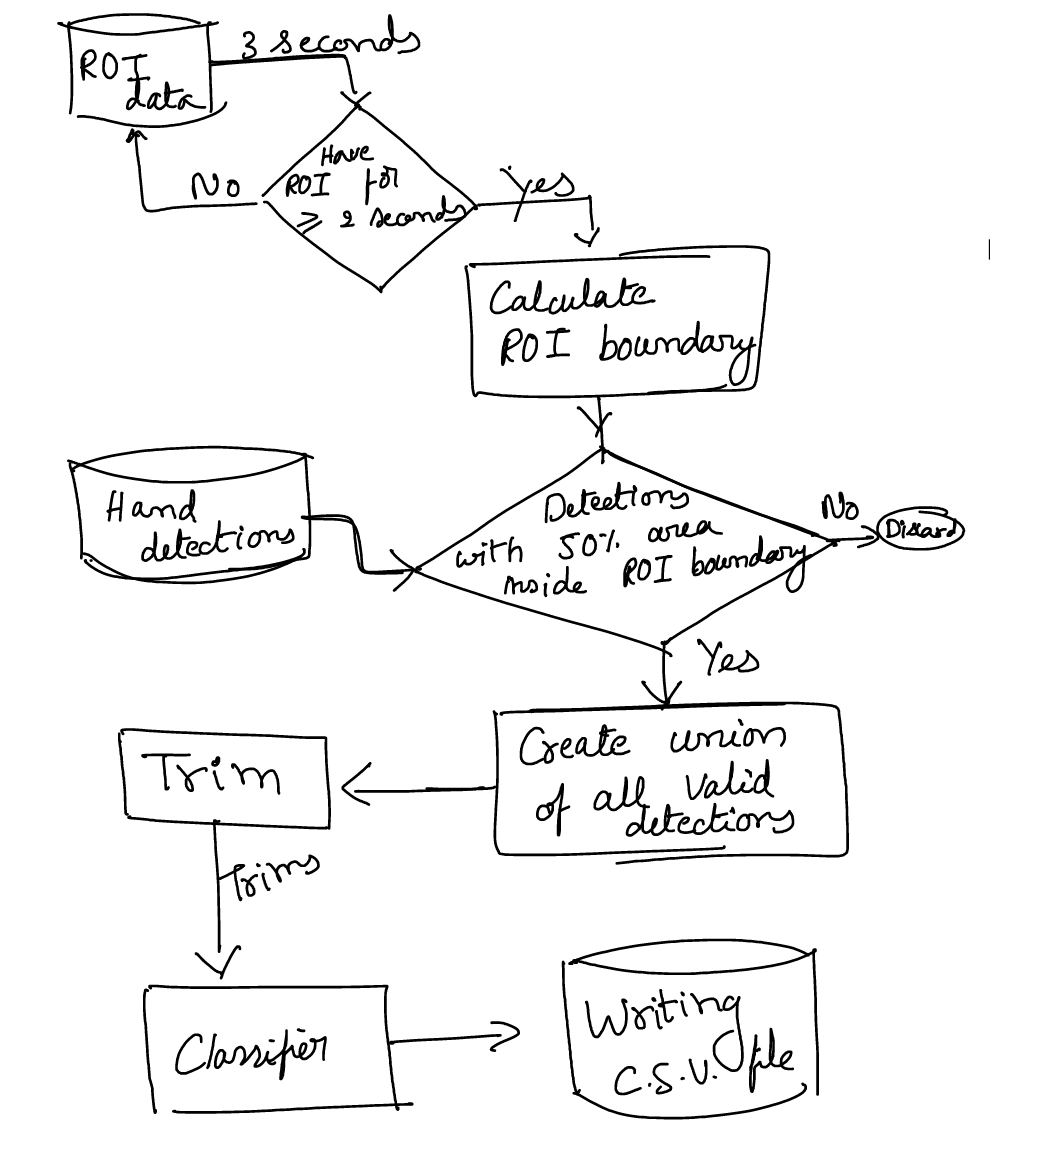 3 seconds
ROI
data
Have
ROI for
≥ 2 seconds
No
Yes
Calculate
ROI boundary
Hand
detections
Detections
with 50% area
inside ROI boundary
No
Discard
Yes
Create union
of all valid
detections
Trim
Trims
Classifier
Writing
C.S.V. file